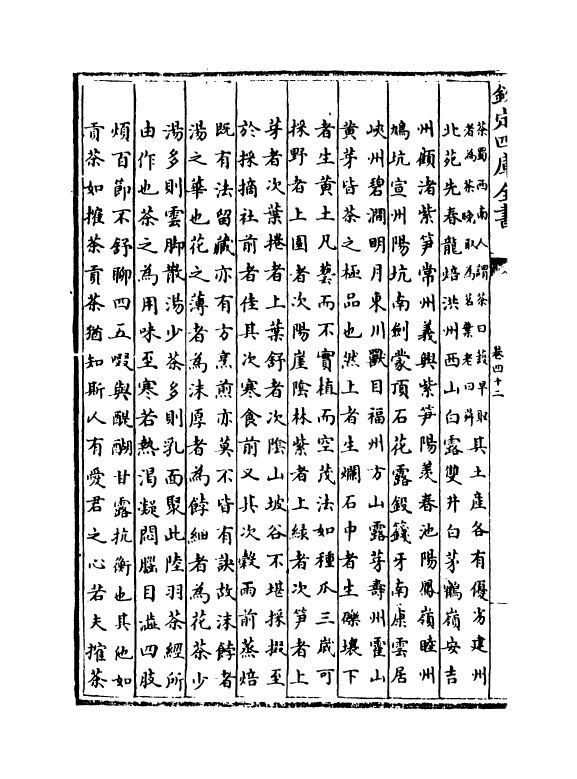 欽定四庫全書
卷四十二
茶蜀西南人謂茶曰蔎早取
者為茶晚取為茗葉老曰荈
其土產各有優劣建州
北苑先春龍焙洪州西山白露雙井白茅鶴嶺安吉
州顧渚紫笋常州義興紫笋陽羨春池陽鳳嶺睦州
鳩坑宣州陽坑南劍蒙頂石花露鋑籛牙南康雲居
峽州碧澗明月東川獸目福州方山露芽壽州霍山
黄芽皆茶之極品也然上者生爛石中者生礫壤下
者生黄土凡藝而不實植而空茂法如種瓜三歲可
採野者上園者次陽崖陰林紫者上綠者次笋者上
芽者次葉捲者上葉舒者次陰山坡谷不堪採掇至
於採摘社前者佳其次寒食前又其次穀雨前蒸焙
既有法留藏亦有方烹煎亦莫不皆有訣故沫餑者
湯之華也花之薄者為沫厚者為餑細者為花茶少
湯多則雲脚散湯少茶多則乳面聚此陸羽茶經所
由作也茶之為用味至寒若熱渴凝悶腦目澁四肢
煩百節不舒聊四五啜與醍醐甘露抗衡也其他如
貢茶如搉茶貢茶猶知斯人有愛君之心若夫搉茶